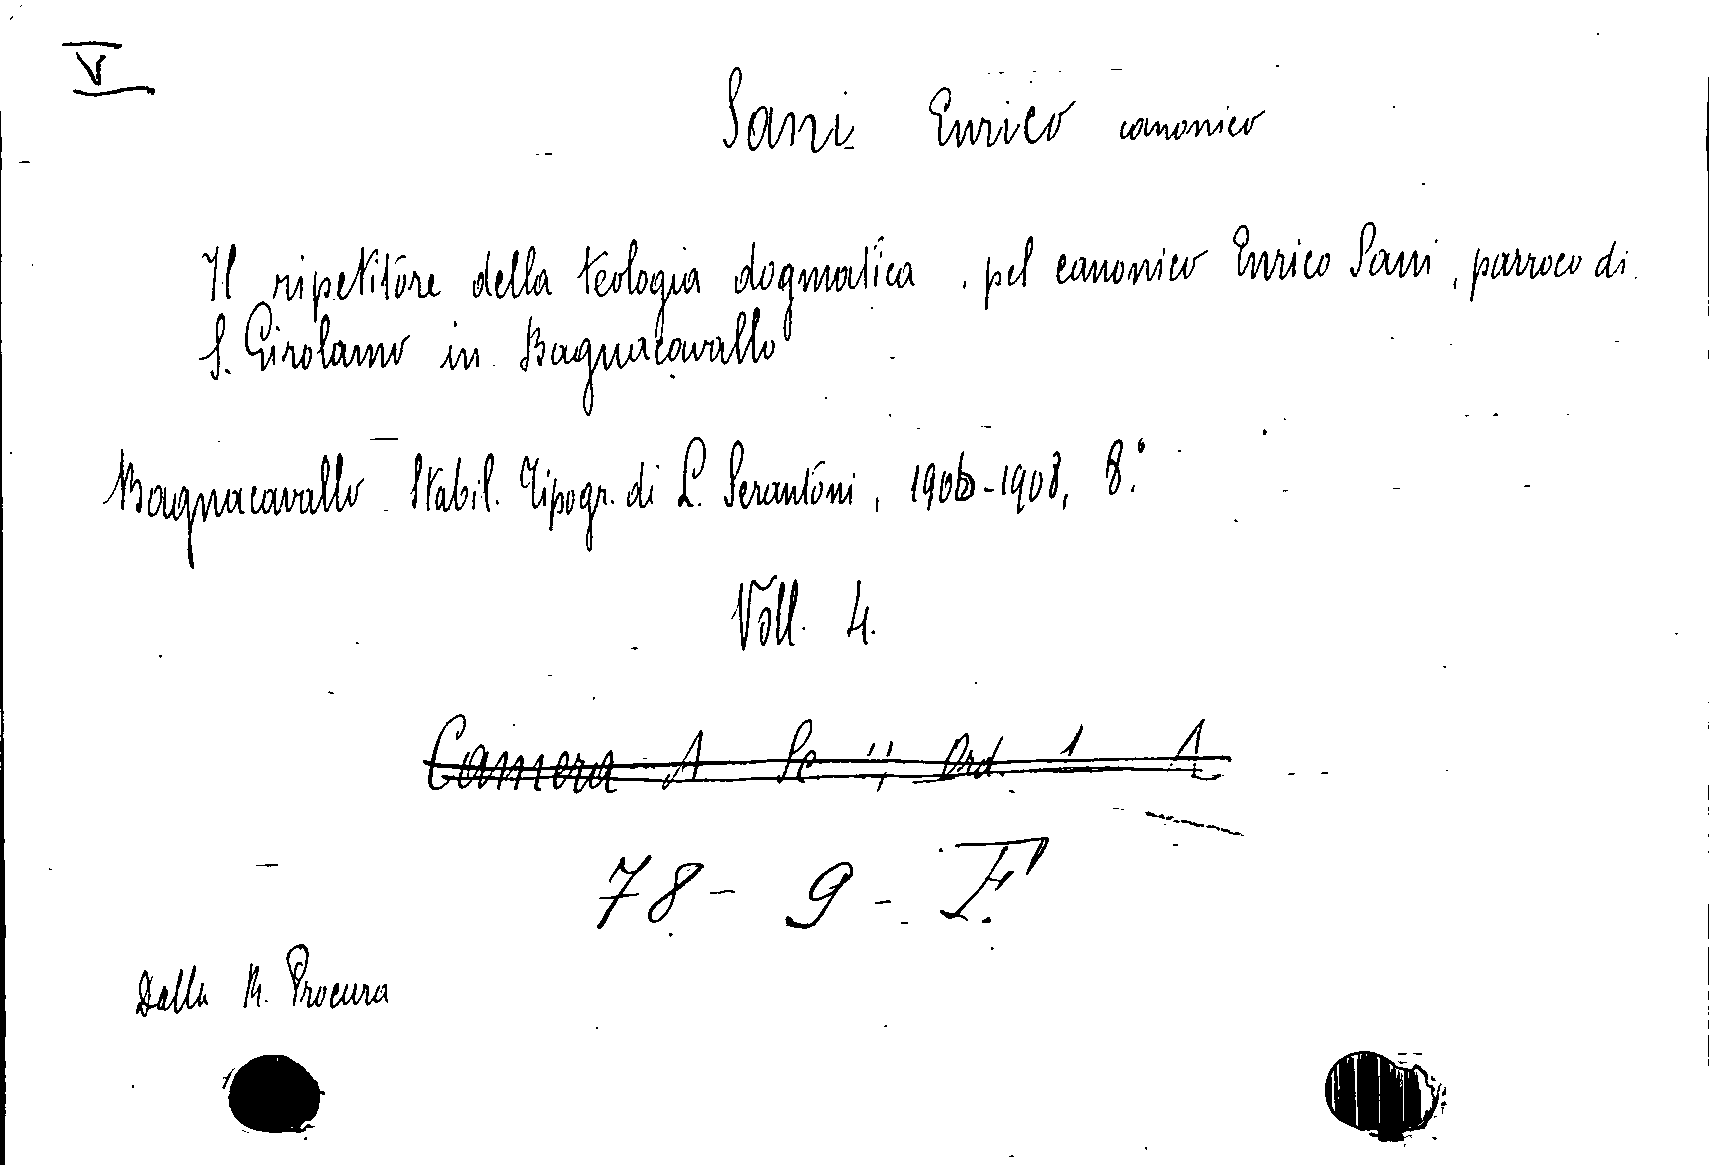 V
Sani Enrico canonico
Il ripetitore della teologia dogmatica, pel canonico Enrico Sani, parroco di
S. Girolamo in Bagnacavallo
Bagnacavallo Stabil. Tipogr. di L. Serantoni, 1906-1908, 8.°
Voll. 4.
Camera A Sc " Ord. 1 1
78 - 9 - F.
Dalla R. Procura